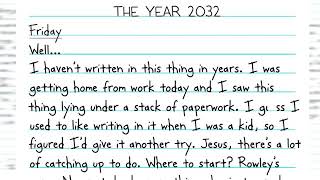 THE YEAR 2032
Friday
Well...
I haven't written in this thing in years. I was
getting home from work today and I saw this
thing lying under a stack of paperwork. I gu ss I
used to like writing in it when I was a kid, so I
figured I'd give it another try. Jesus, there's a lot
of catching up to do. Where to start? Rowley's